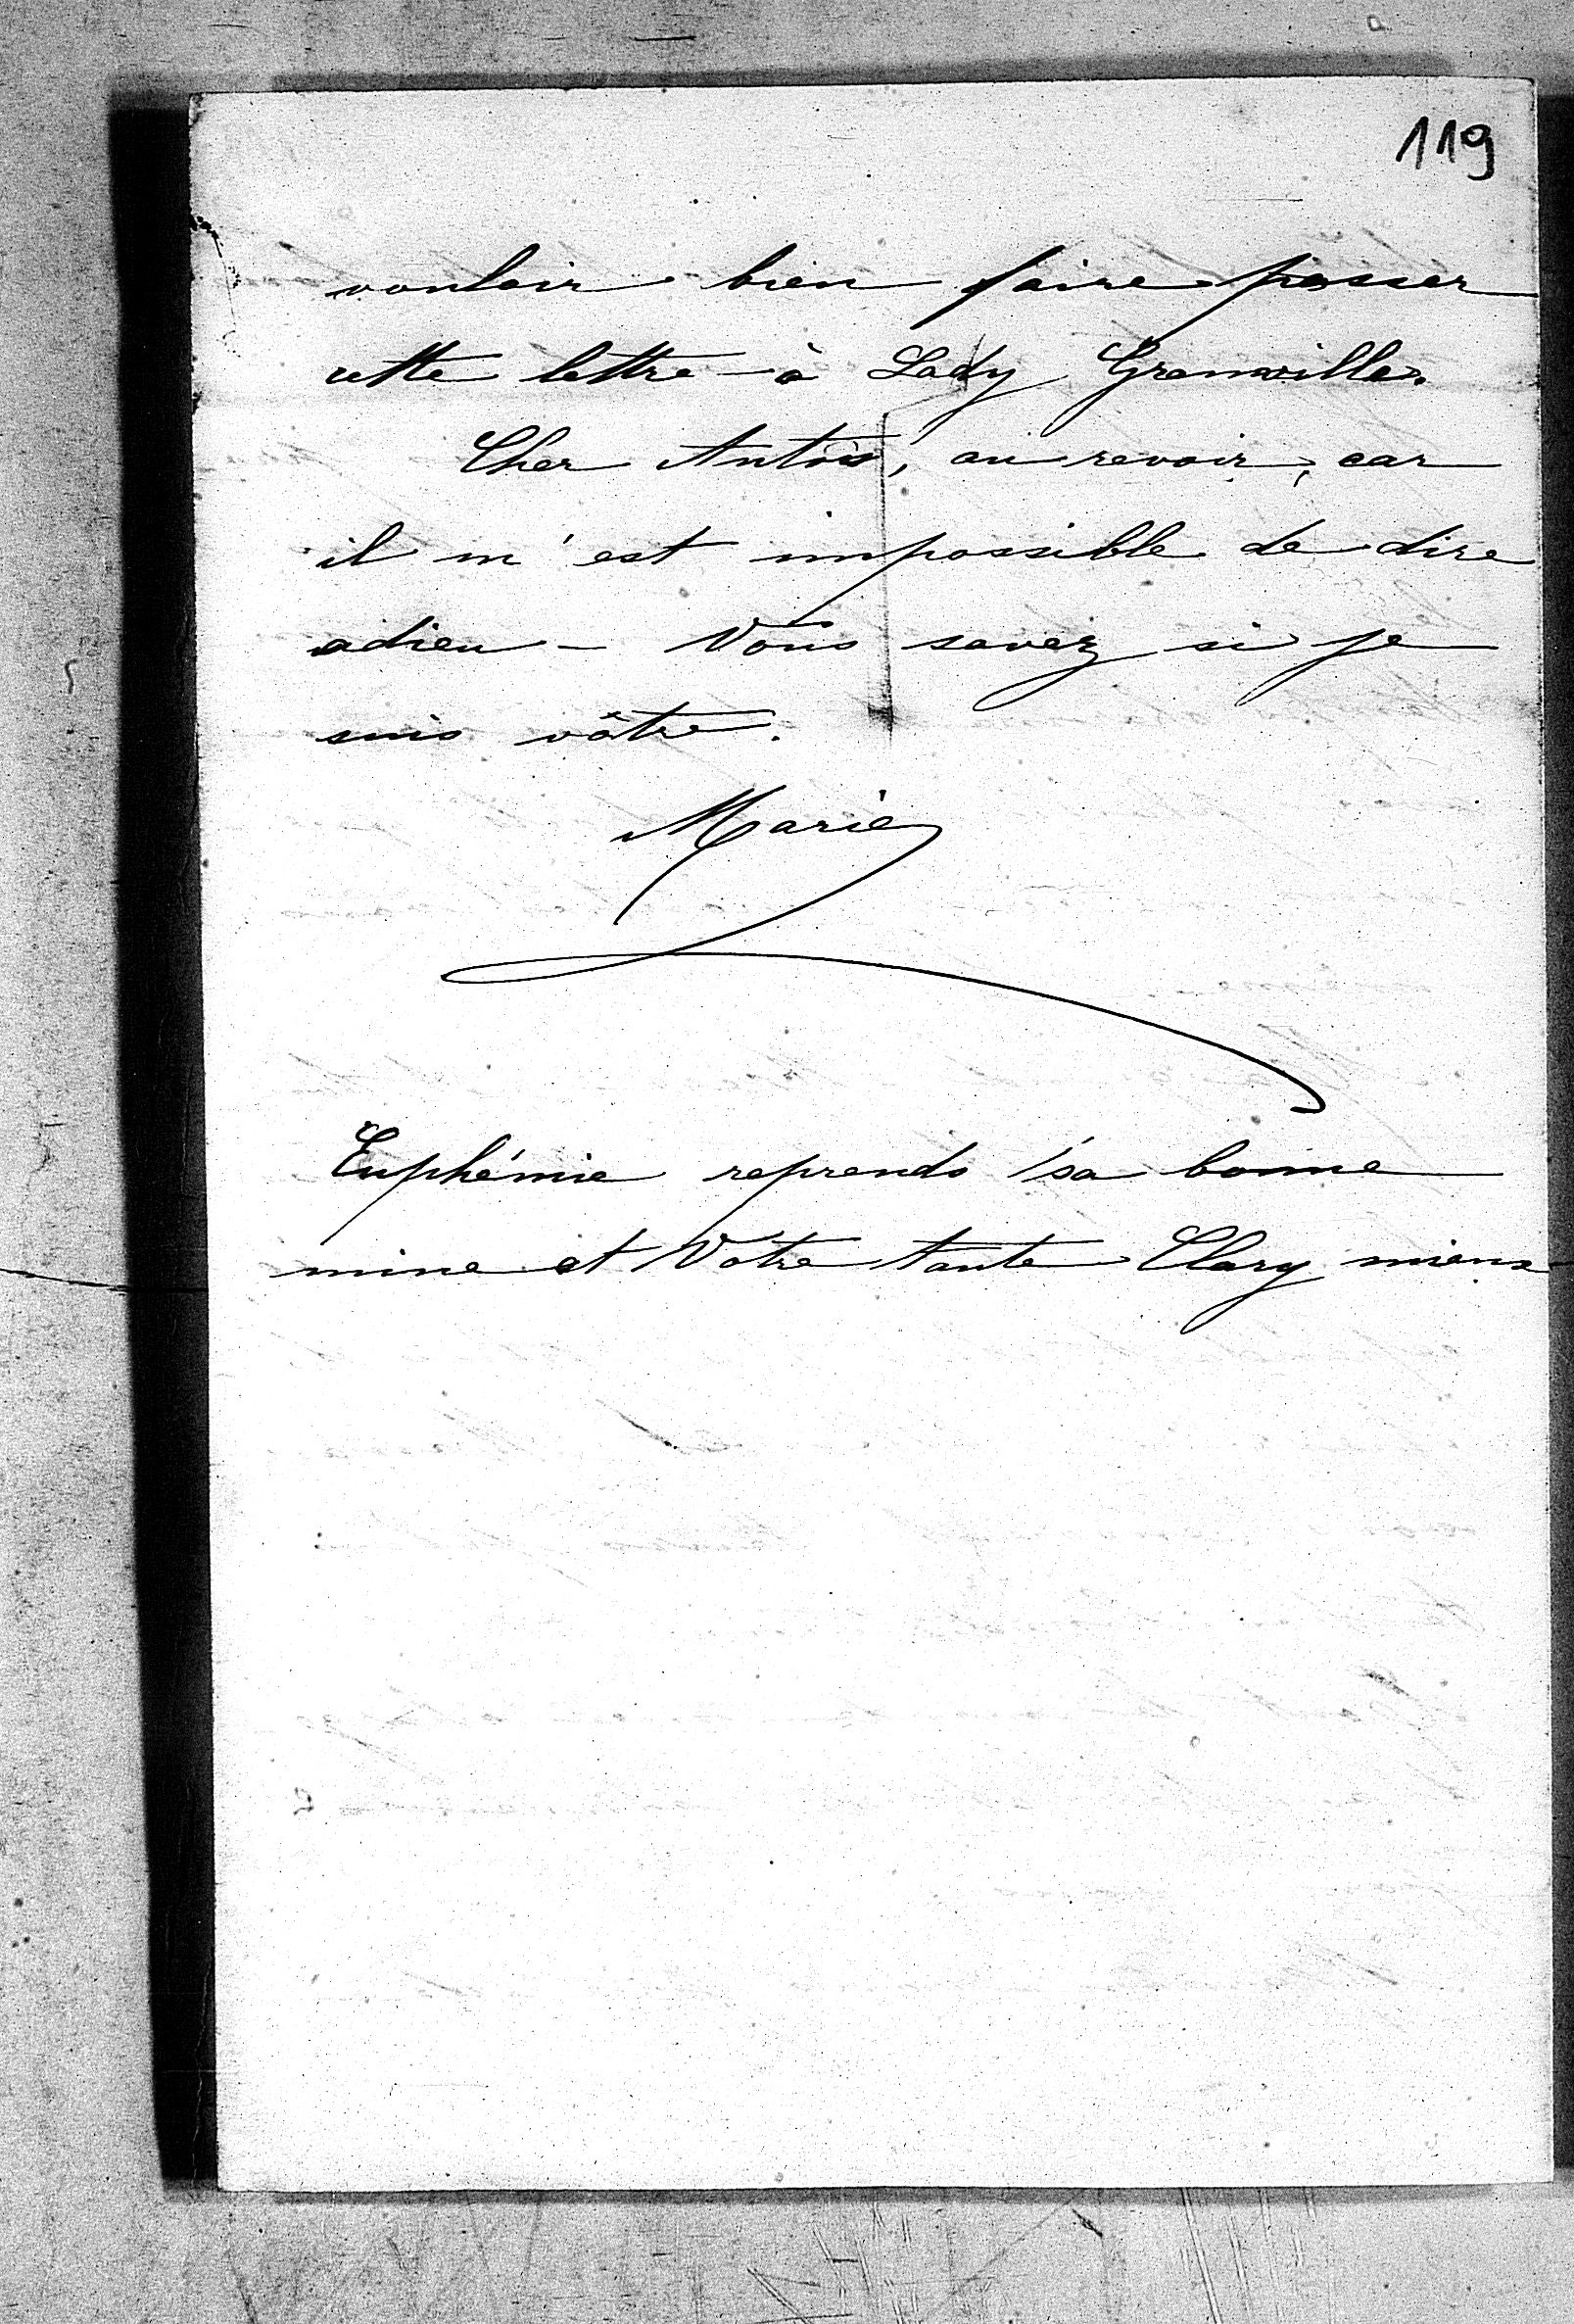 119
vouloir bien faire passer
cette lettre à Lady Granville.
Cher Antois, au revoir, car
il m'est impossible de dire
adieu – Vous savez si je
suis vôtre.
Marie
Euphémie reprends sa bonne
mine et Votre tante Clary mieux